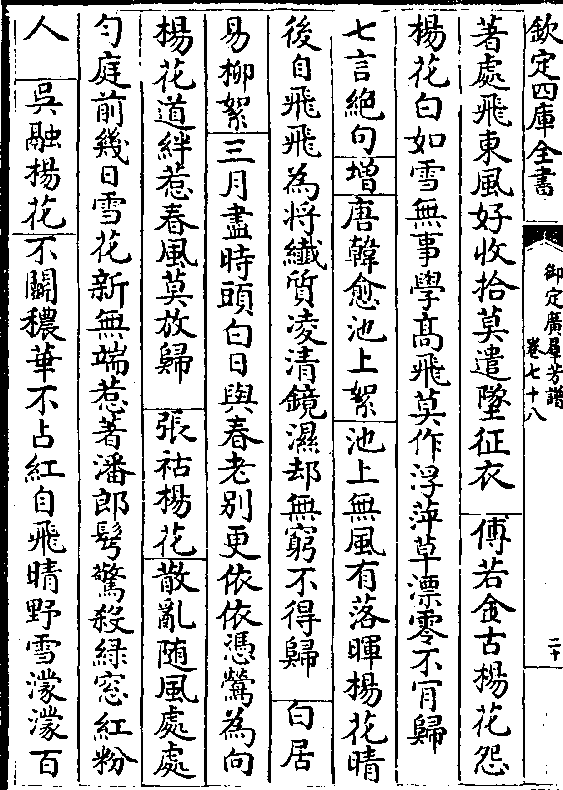 欽定四庫全書
御定廣羣芳譜
卷七十八
二十
著處飛東風好收拾莫遣墜征衣　傅若金古楊花怨
楊花白如雪無事學髙飛莫作浮萍草漂零不肎歸
七言絶句增唐韓愈池上絮池上無風有落暉楊花晴
後自飛飛為將纖質凌清鏡濕却無窮不得歸　白居
易柳絮三月盡時頭白日與春老别更依依憑鶯為向
楊花道絆惹春風莫放歸　張祜楊花散亂随風處處
勻庭前幾日雪花新無端惹著潘郎髩驚殺緑窓紅粉
人　吳融楊花不關穠華不占紅自飛晴野雪濛濛百